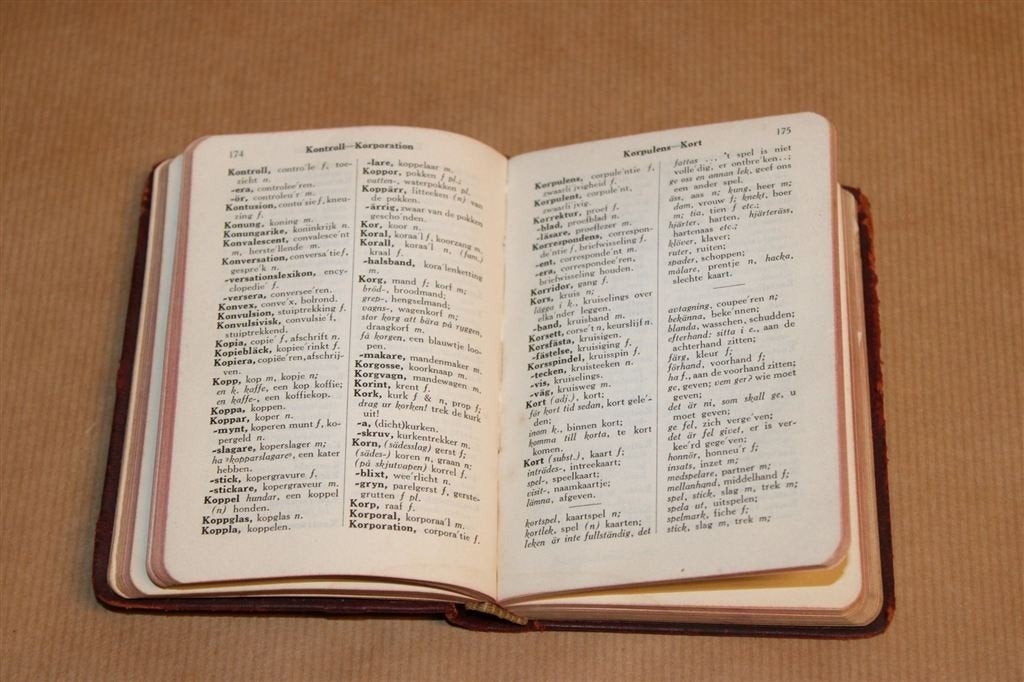 174
Kontroll—Korporation
Kontroll, contro´le f, toe-
zicht n.
-era, controlee´ren.
-ör, controleu´r m.
Kontusion, contu´sie f, kneu-
zing f.
Konung, koning m.
Konungarike, koninkrijk n.
Konvalescent, convalesce´nt
m, herste´llende m.
Konversation, conversa´tie f,
gespre´k n.
-versationslexikon, ency-
clopedie´ f.
-versera, conversee´ren.
Konvex, conve´x, bolrond.
Konvulsion, stuiptrekking f.
Konvulsivisk, convulsie´f,
stuiptrekkend.
Kopia, copie´ f, afschrift n.
Kopiebläck, kopiee´rinkt f.
Kopiera, copiëe´ren, afschrij-
ven.
Kopp, kop m, kopje n;
en k. kaffe, een kop koffie;
en kaffe-, een koffiekop.
Koppa, koppen.
Koppar, koper n.
-mynt, koperen munt f, ko-
pergeld n.
-slagare, koperslager m;
ha »kopparslagare», een kater
hebben.
-stick, kopergravure f.
-stickare, kopergraveur m.
Koppel hundar, een koppel
(n) honden.
Koppglas, kopglas n.
Koppla, koppelen.
-lare, koppelaar m.
Koppor, pokken f pl.;
vatten-, waterpokken pl.
Koppärr, litteeken (n) van
de pokken.
-ärrig, zwaar van de pokken
gescho´nden.
Kor, koor n.
Koral, koraa´l f, koorzang m.
Korall, koraa´l n, (fam.)
kraal f.
-halsband, kora´lenketting
m.
Korg, mand f; korf m;
bröd-, broodmand;
grep-, hengselmand;
vagns-, wagenkorf m;
stor korg att bära på ruggen,
draagkorf m.
få korgen, een blauwtje loo-
pen.
-makare, mandenmaker m.
Korgosse, koorknaap m.
Korgvagn, mandewagen m.
Korint, krent f.
Kork, kurk f & n, prop f;
drag ur korken! trek de kurk
uit!
-a, (dicht)kurken.
-skruv, kurkentrekker m.
Korn, (sädesslag) gerst f;
(sädes-) koren n, graan n;
(på skjutvapen) korrel f.
-blixt, wee´rlicht n.
-gryn, parelgerst f, gerste-
grutten f pl.
Korp, raaf f.
Korporal, korporaa´l m.
Korporation, corpora´tie f.
Korpulens—Kort
175
Korpulens, corpule´ntie f,
zwaarli´jvigheid f.
Korpulent, corpule´nt,
zwaarli´jvig.
Korrektur, proef f.
-blad, proefblad n.
-läsare, proeflezer m.
Korrespondens, correspon-
de´ntie f, briefwisseling f.
-ent, corresponde´nt m.
-era, correspondee´ren,
briefwisseling houden.
Korridor, gang f.
Kors, kruis n;
lägga i k., kruiselings over
elka´nder leggen.
-band, kruisband m.
Korsett, corse´t n, keurslijf n.
Korsfästa, kruisigen.
-fästelse, kruisiging f.
Korsspindel, kruisspin f.
-tecken, kruisteeken n.
-vis, kruiselings.
-väg, kruisweg m.
Kort (adj.), kort;
för kort tid sedan, kort gele´-
den;
inom k., binnen kort;
komma till korta, te kort
komen.
Kort (subst.), kaart f;
inträdes-, intreekaart;
spel-, speelkaart;
visit-, naamkaartje;
lämna, afgeven.
kortspel, kaartspel n;
kortlek, spel (n) kaarten;
leken är inte fullständig, det
fattas ... ´t spel is niet
volle´dig, er ontbre´ken...;
ge oss en annan lek, geef ons
een ander spel.
äss, aas n; kung, heer m;
dam, vrouw f; knekt, boer
m; tia, tien f etc.;
hjärter, harten, hjärteräss,
hartenaas etc.;
klöver, klaver;
ruter, ruiten;
spader, schoppen;
målare, prentje n, hacka,
slechte kaart.
avtagning, coupee´ren n;
bekänna, beke´nnen;
blanda, wasschen, schudden;
efterhand: sitta i e., aan de
achterhand zitten;
färg, kleur f;
förhand, voorhand f;
ha f., aan de voorhand zitten;
ge, geven; vem ger? wie moet
geven;
det är ni, som skall ge, u
moet geven;
ge fel, zich verge´ven;
det är fel givet, er is ver-
kee´rd gege´ven;
honnör, honneu´r f;
insats, inzet m;
medspelare, partner m;
mellanhand, middelhand f;
spel, stick, slag m, trek m;
spela ut, uitspelen;
spelmark, fiche f;
stick, slag m, trek m;